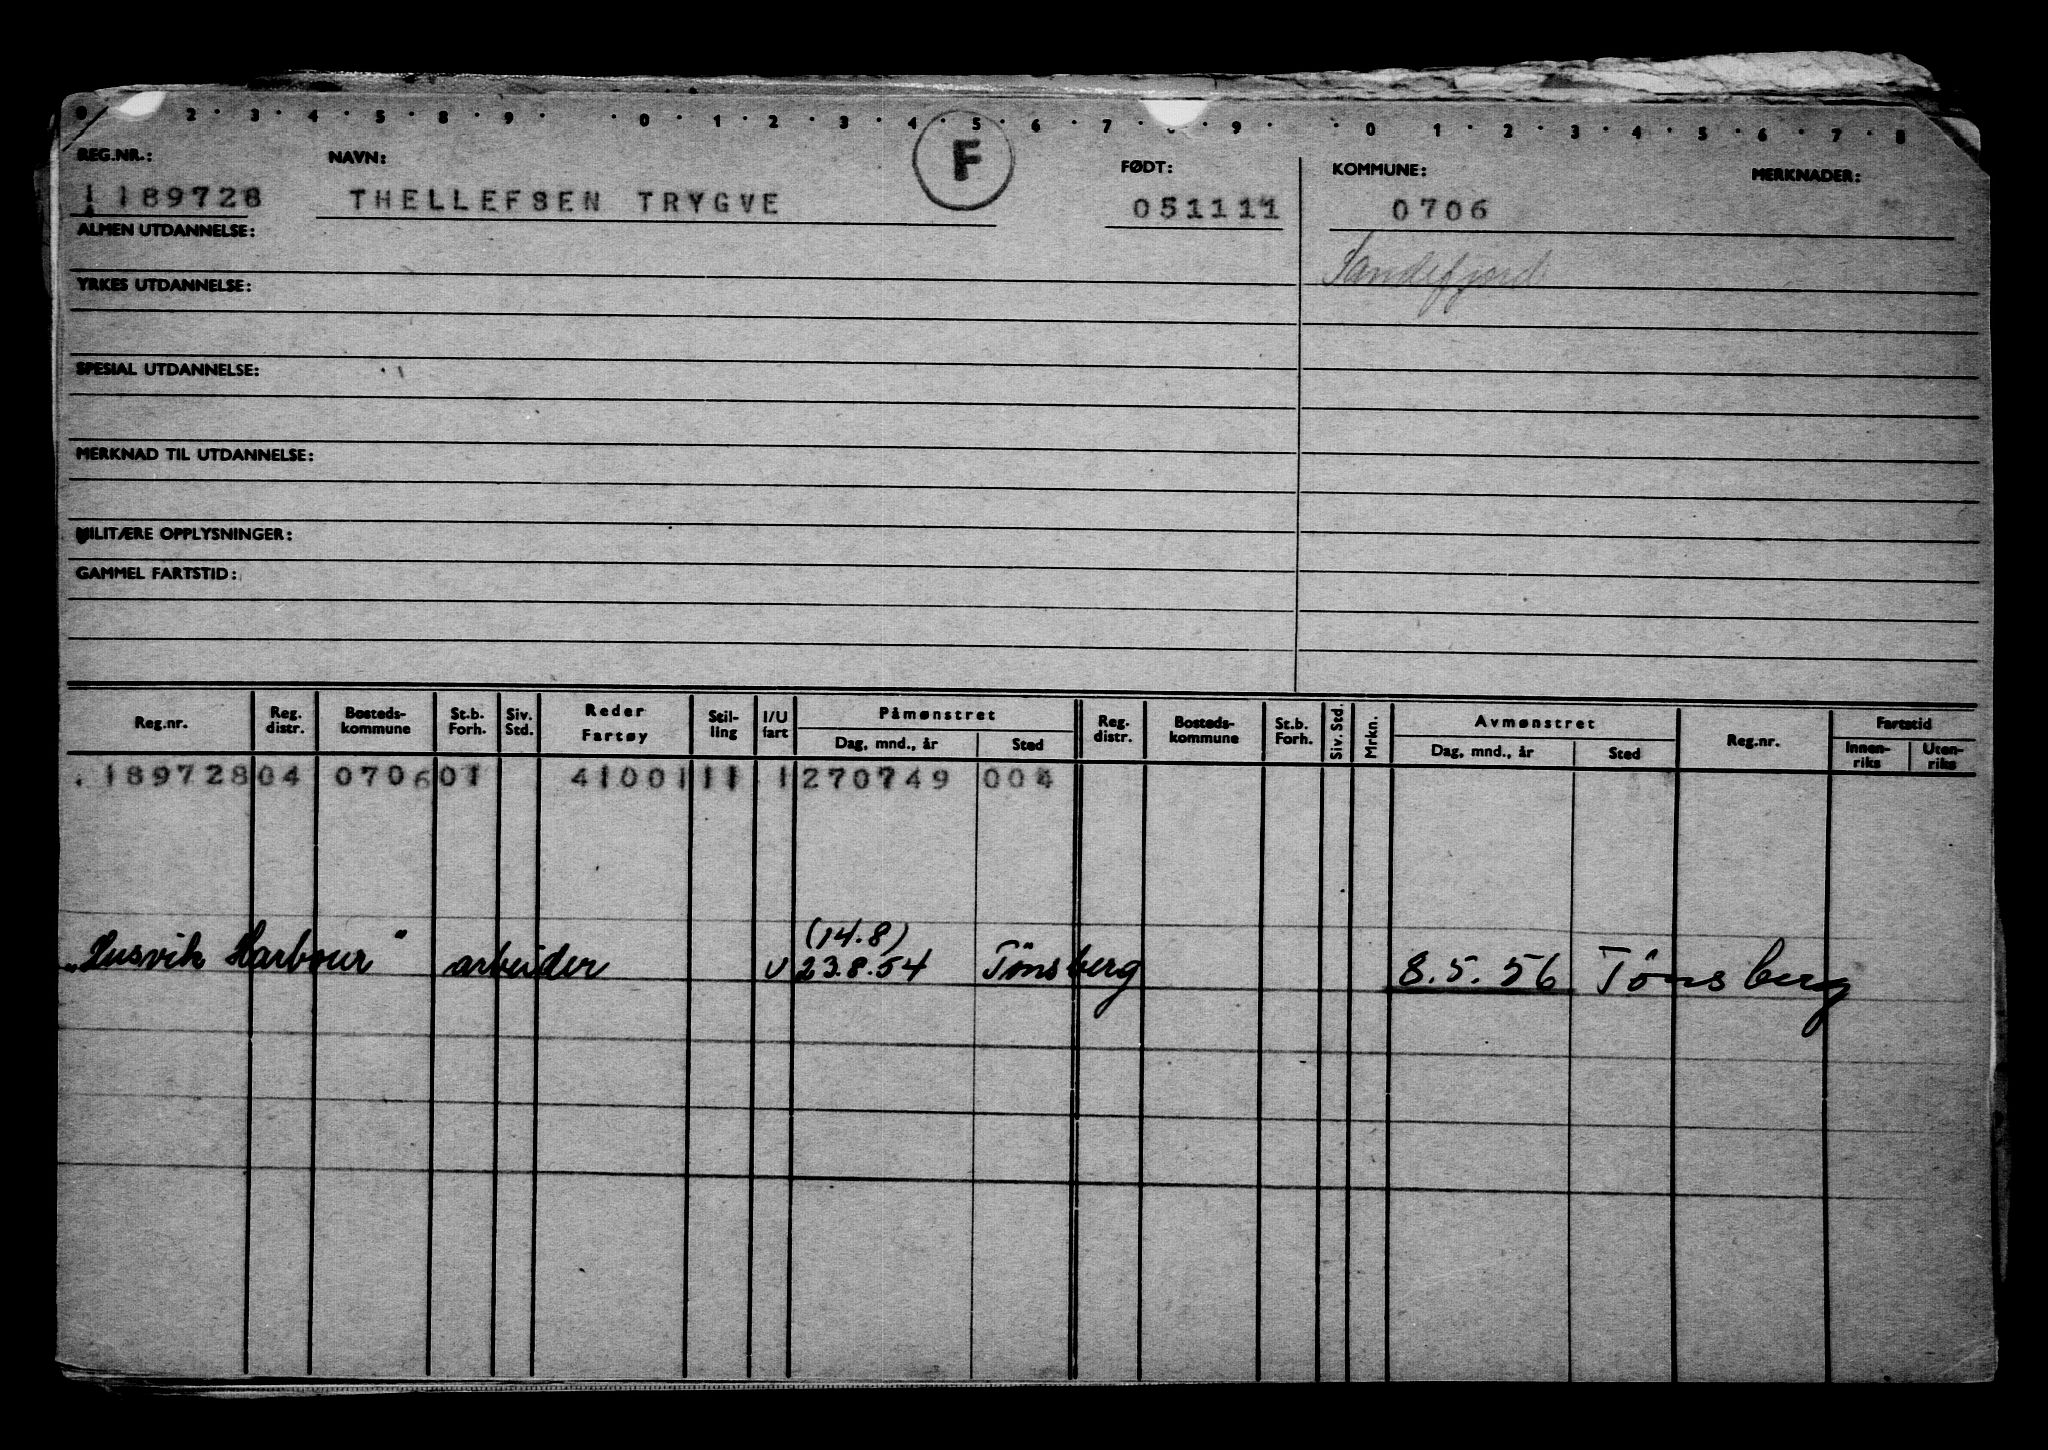 0 2 · 3 · 4 · 5 · 8 · 9 · · 0 · 1 · 2 · 3 · 4 · 5 · 6 · 7 · 8 · 9 · · 0 · 1 · 2 · 3 · 4 · 5 · 6 · 7 · 8
F
REG.NR.: NAVN: FØDT: KOMMUNE: MERKNADER:
1 189728 THELLEFSEN TRYGVE 051111 0706
ALMEN UTDANNELSE:
Sandefjord
YRKES UTDANNELSE:
SPESIAL UTDANNELSE:
MERKNAD TIL UTDANNELSE:
MILITÆRE OPPLYSNINGER:
GAMMEL FARTSTID:
Reg.nr. Reg. distr. Bosteds-kommune St.b. Forh. Siv. Std. Reder Fartøy Stil-ling I/U fart Påmønstret Dag, mnd., år Sted Reg. distr. Bosteds-kommune St.b. Forh. Siv. Std. Mrkn. Avmønstret Dag, mnd., år Sted Reg.nr. Fartstid Innen-riks Uten-riks
189728 04 0706 01 41001 11 1 270749 004
(14.8)
„Husvik Harbour" arbeider U 23.8.54 Tönsberg 8.5.56 Tönsberg